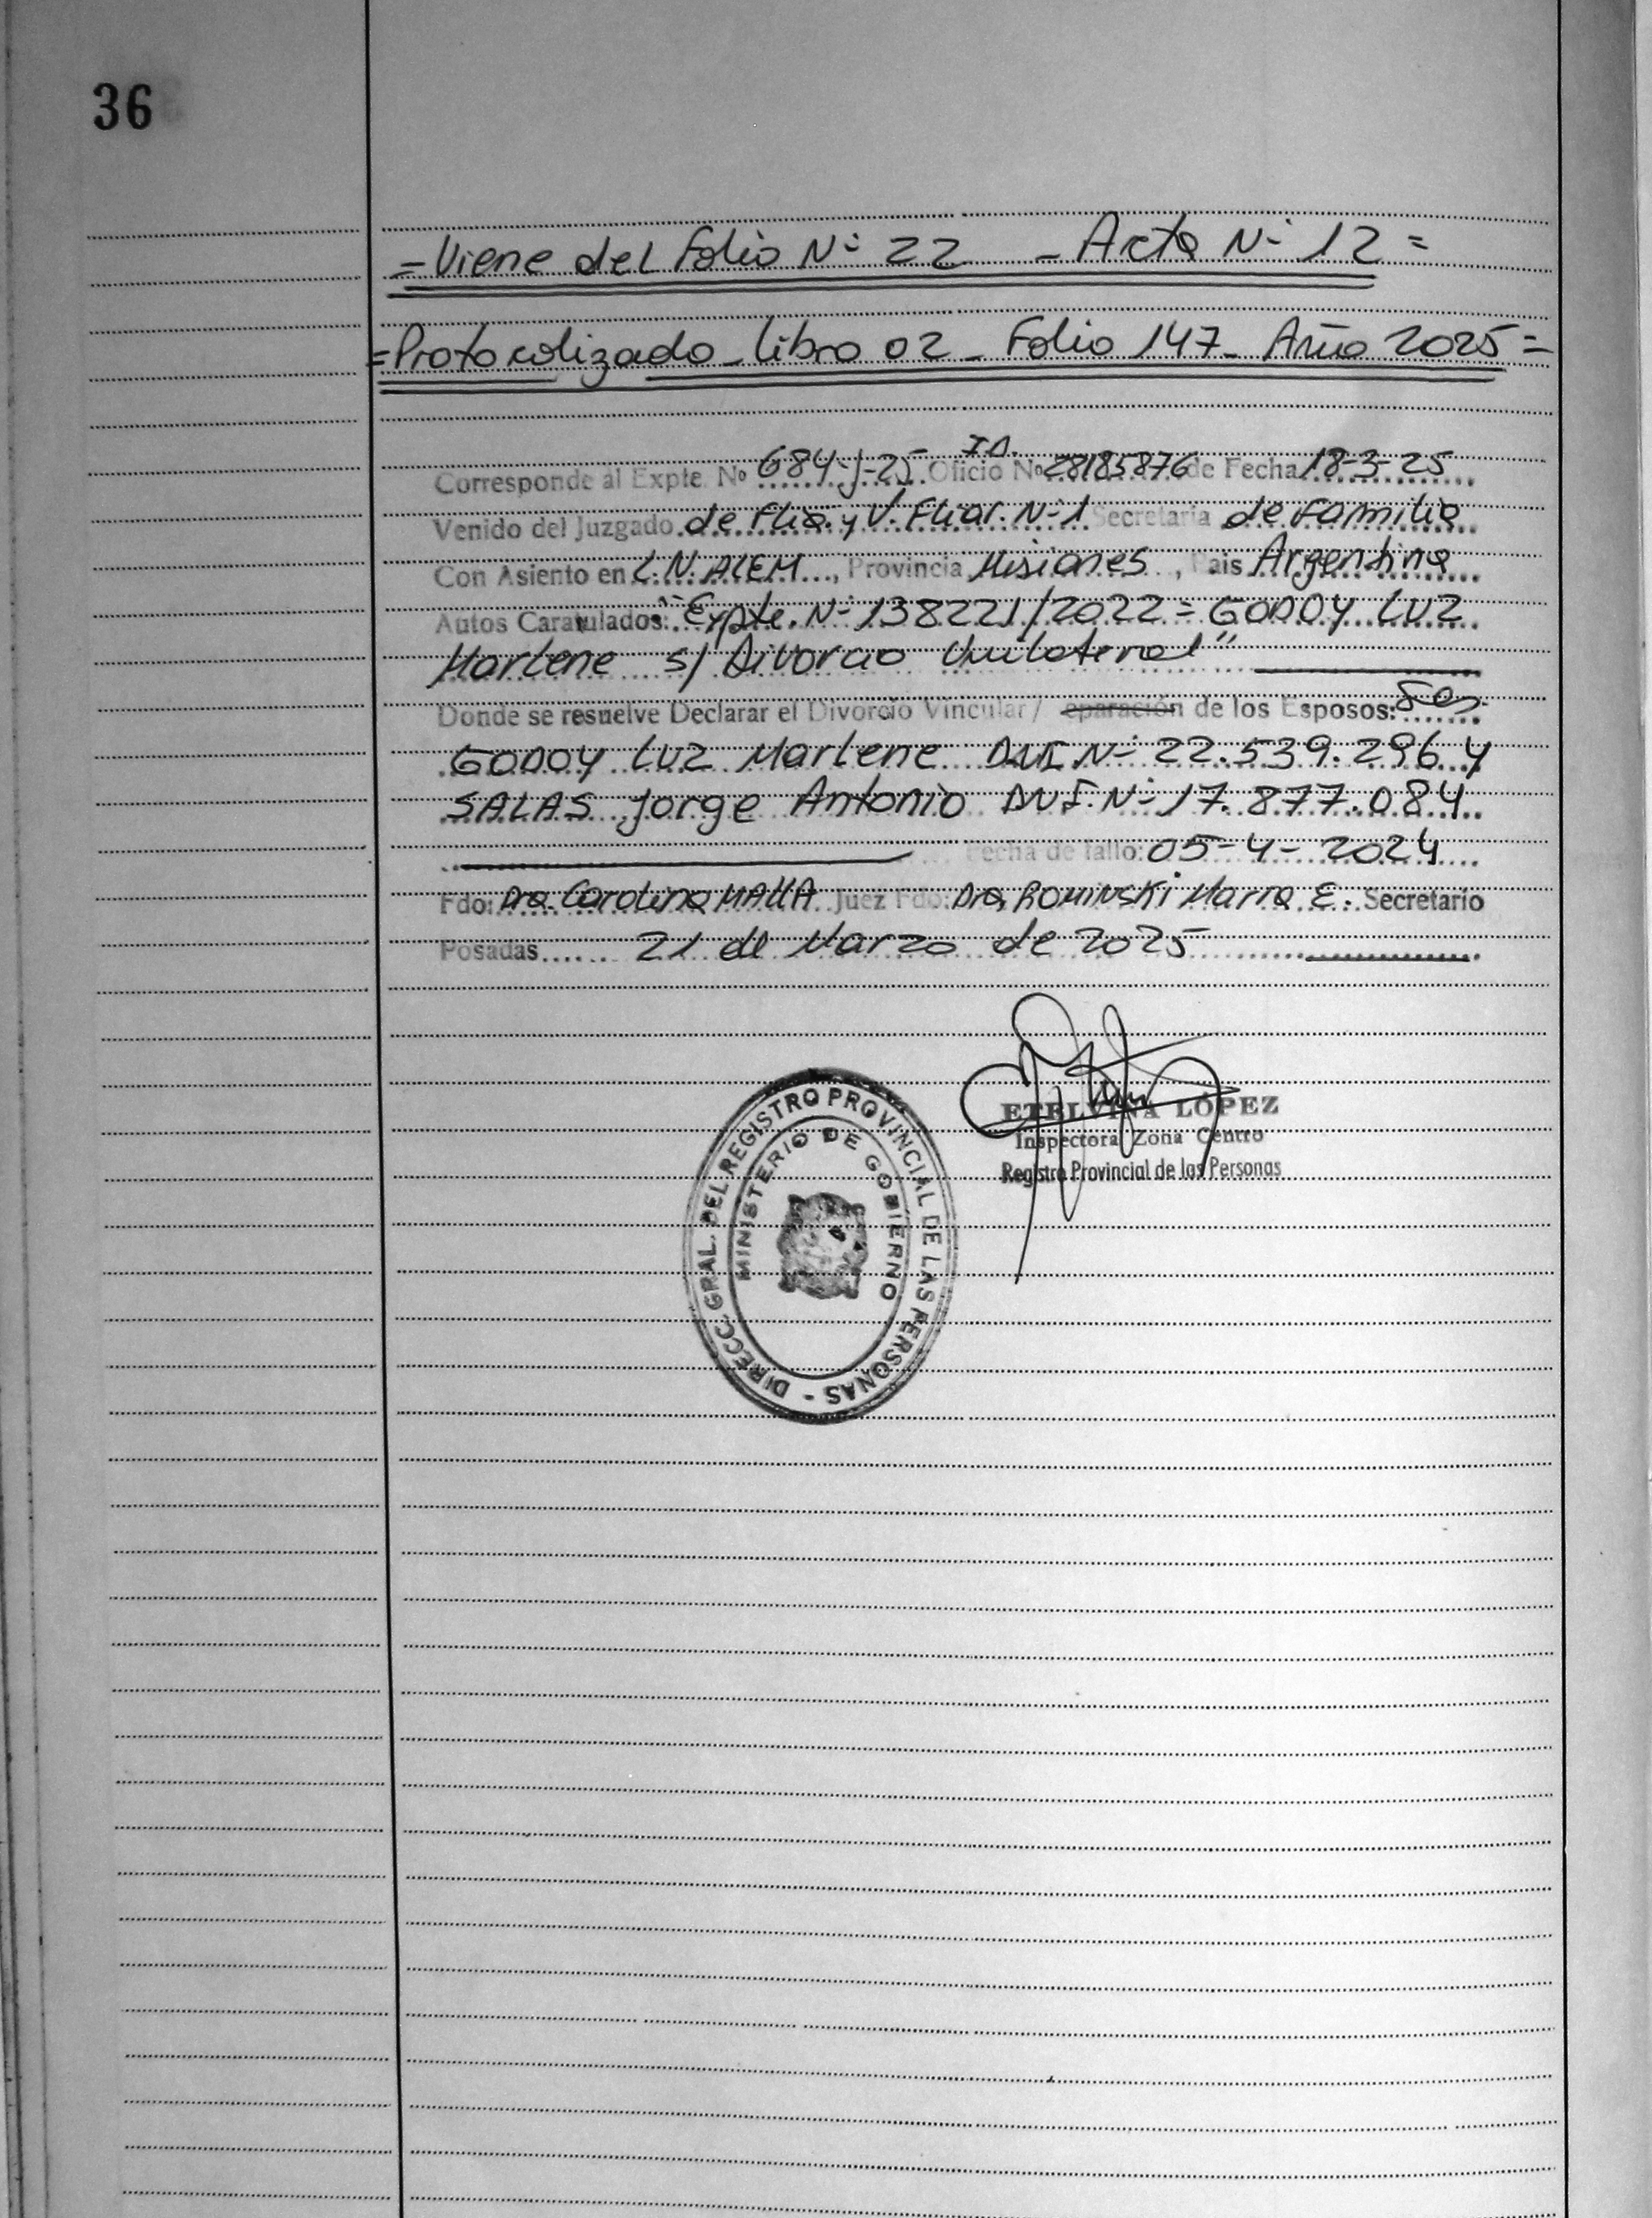 36
=Viene del Folio Nº 22 - Acta Nº 12=
=Protocolizado - libro 02 - Folio 147 - Año 2025=
Corresponde al Expte. Nº 684-J-25 Oficio I.D. Nº 28185876 de Fecha 18-3-25
Venido del Juzgado de Flia. y V. Fliar. Nº 1 Secretaria de Familia
Con Asiento en L.N. ALEM, Provincia Misiones, Pais Argentina
Autos Caratulados: "Expte. Nº 138221/2022 = GODOY LUZ
Marlene s/ Divorcio Unilateral"
Donde se resuelve Declarar el Divorcio Vincular/ eparación de los Esposos:
GODOY LUZ Marlene DNI Nº 22.539.296 y
SALAS Jorge Antonio DNI. Nº 17.877.084
Fecha de fallo: 05-4-2024
Fdo: Dra. Carolina Juez Fdo: Dra. ROMINSKI Maria E. Secretario
Posadas 21 de Marzo de 2025
ETELVINA LÓPEZ
Inspectora Zona Centro
Registro Provincial de las Personas
DIRECC. GRAL. DEL REGISTRO PROVINCIAL DE LAS PERSONAS -
MINISTERIO DE GOBIERNO